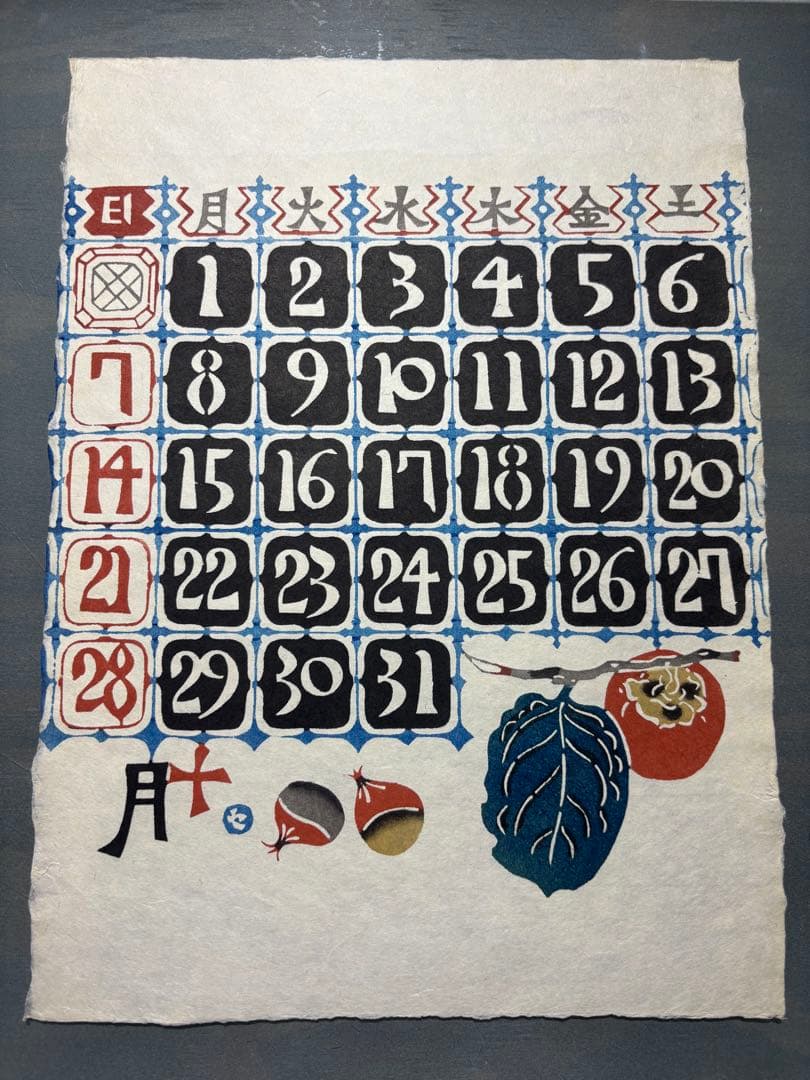 日 月 火 水 木 金 土
1 2 3 4 5 6
7 8 9 10 11 12 13
14 15 16 17 18 19 20
21 22 23 24 25 26 27
28 29 30 31
十月
セ